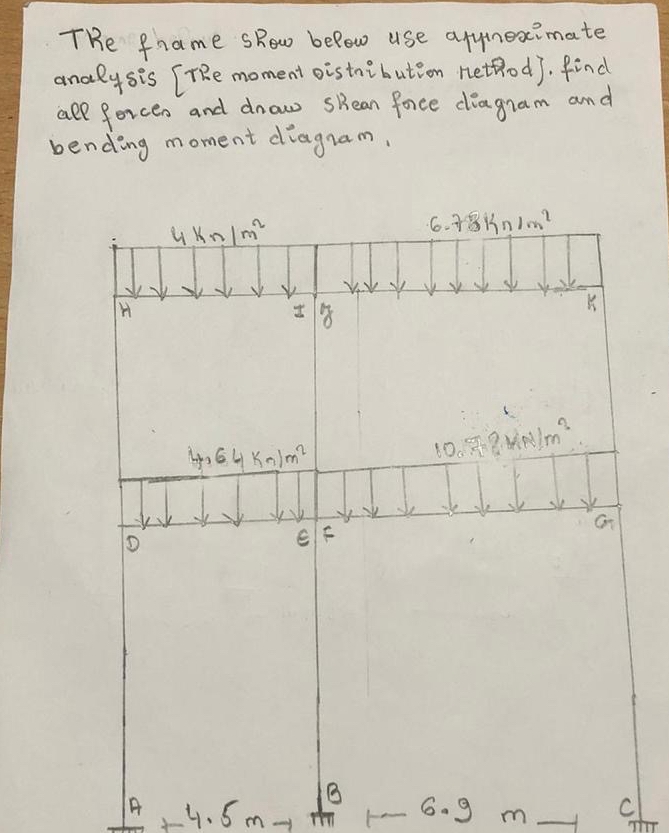 The frame show below use approximate
analysis [The moment Distribution Method]. find
all forces and draw shear force diagram and
bending moment diagram.
4 Kn/m²
6.78 Kn/m²
H
I
J
K
4.64 Kn/m²
10.78 KN/m²
D
E
F
G
A
4.5 m
B
6.9 m
C